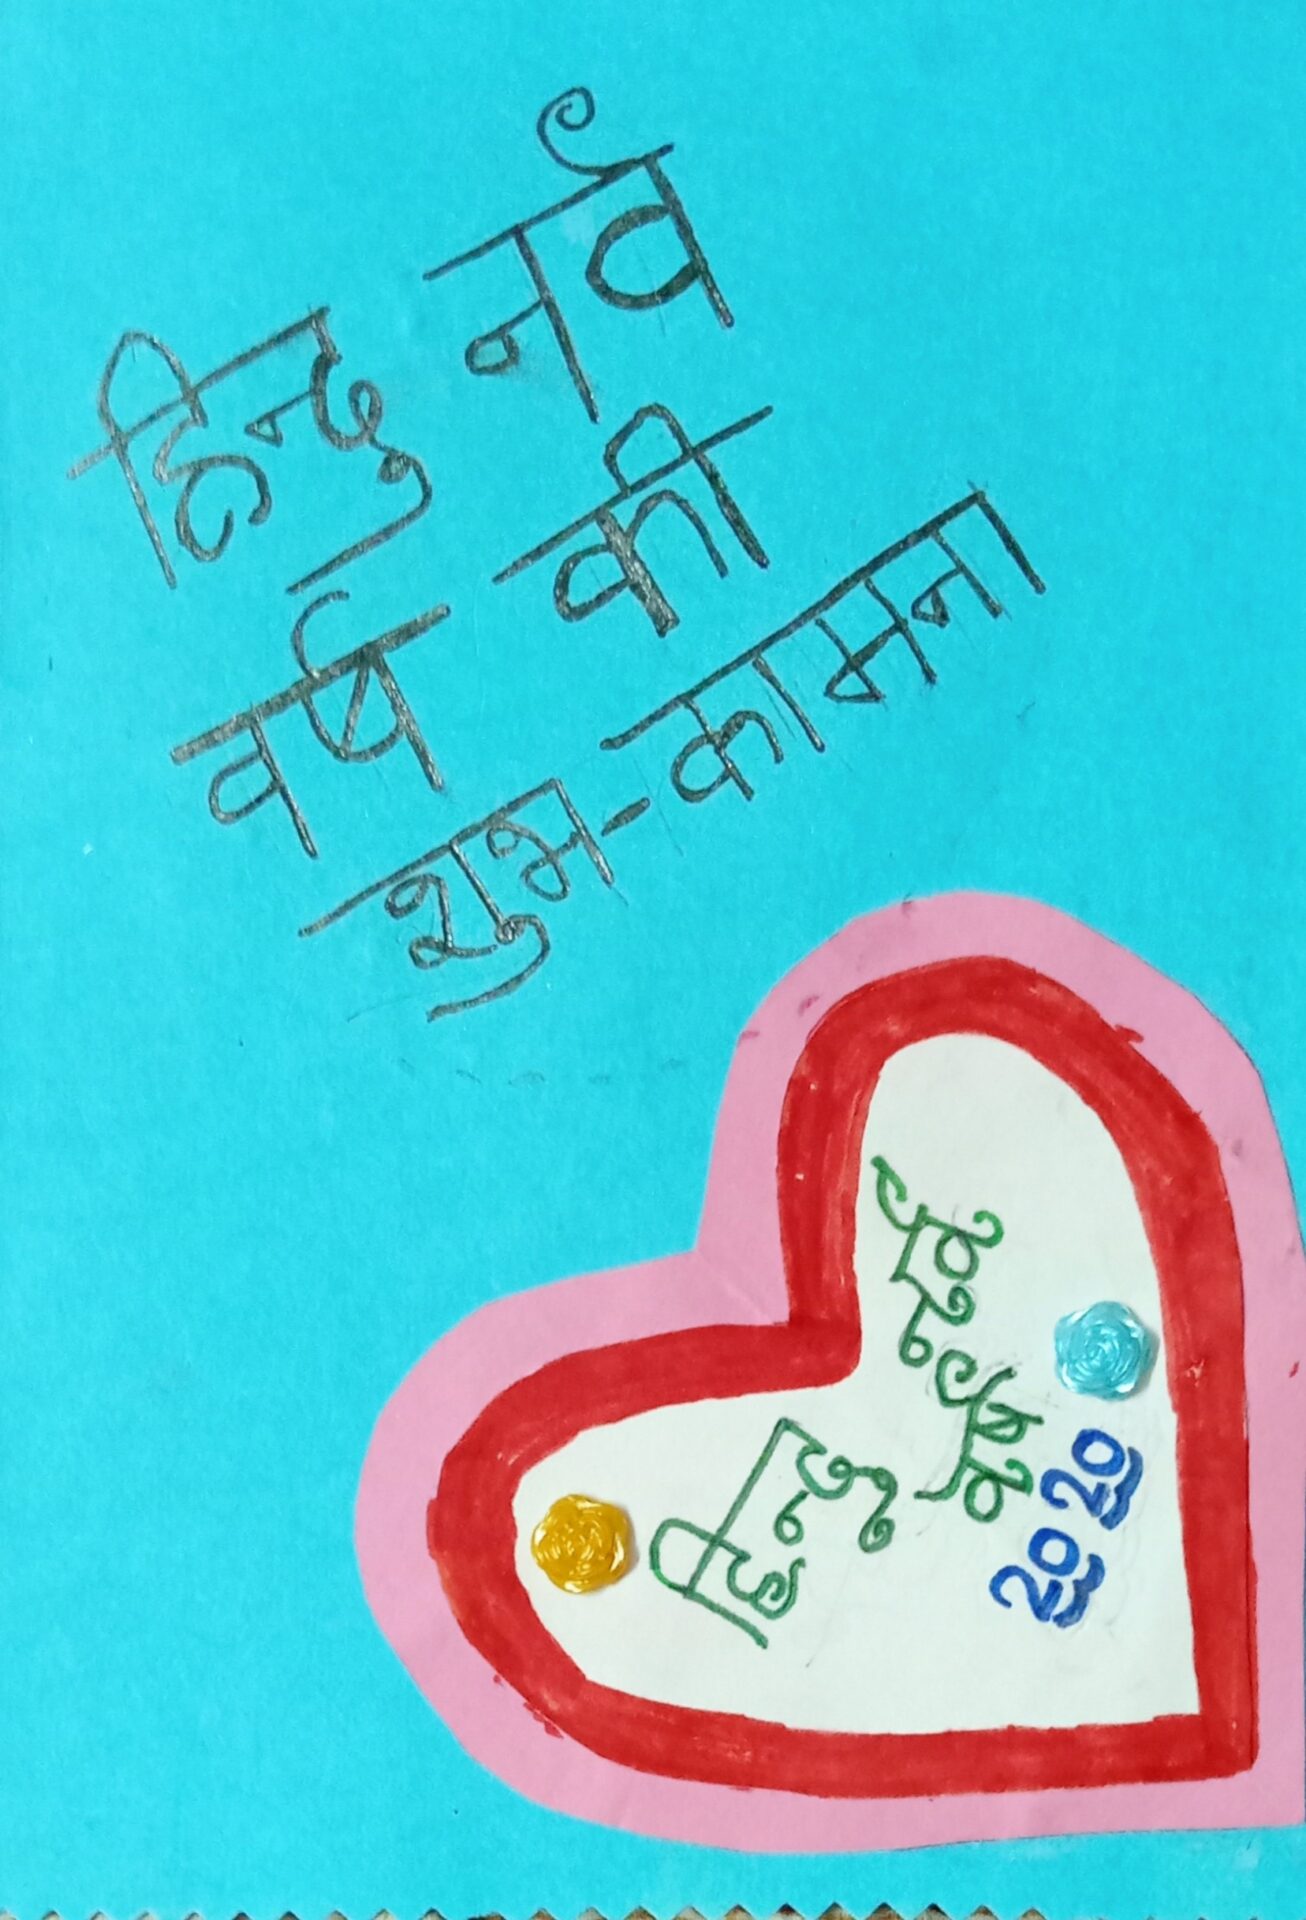 हिन्दु नवे
वर्ष की
शुभ-कामना
हिन्दू
2020